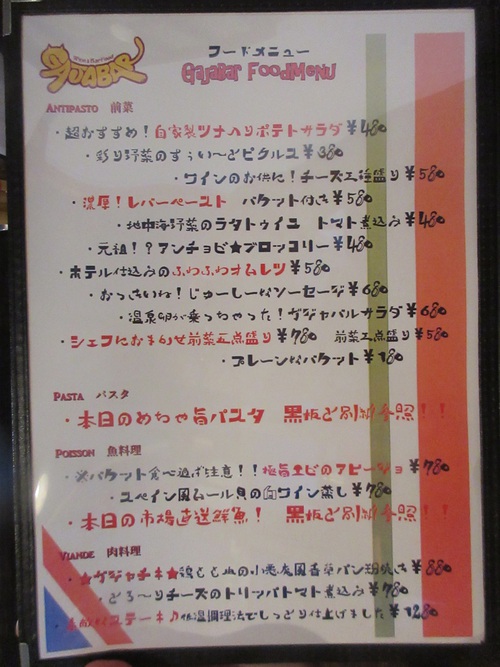 GAJABAR
フードメニュー
GajaBar FoodMenu
Antipasto 前菜
・超おすすめ！自家製ツナ入りポテトサラダ ¥480
・彩り野菜のすぅい〜とピクルス ¥380
・ワインのお供に！チーズ三種盛り ¥580
・濃厚！レバーペースト バケット付き ¥580
・地中海野菜のラタトゥイユ トマト煮込み ¥480
・元祖！？アンチョビ★ブロッコリー ¥480
・ホテル仕込みのふわふわオムレツ ¥580
・おっきいね！じゅーしーなソーセージ ¥680
・温泉卵が乗っちゃった！ガジャバルサラダ ¥680
・シェフにおまかせ前菜五点盛り ¥780 前菜三点盛り ¥580
・プレーンなバケット ¥180
Pasta パスタ
・本日のめちゃ旨パスタ 黒板ど別紙参照！！
Poisson 魚料理
・※バケット食べ過ぎ注意！！極旨エビのアヒージョ ¥780
・スペイン風ムール貝の白ワイン蒸し ¥780
・本日の市場直送鮮魚！ 黒板ど別紙参照！！
Viande 肉料理
・★ガジャチキ★鶏もも肉の小悪魔風香草パン粉焼き ¥880
・とろ〜りチーズのトリッパトマト煮込み ¥780
ステーキ♪低温調理法でしっとり仕上げました ¥1280